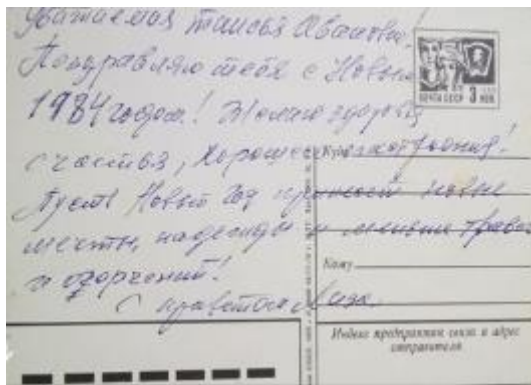 Уважаемая Таисья Ивановна!
Поздравляю тебя с Новым
1984 годом! Желаю здоровья
счастья, хорошего настроения!
Пусть Новый Год приносит новые
мечты, надежды и меньше тревог
и огорчений!
С приветом Лиза.
ПОЧТА СССР 3 КОП.
Куда
Кому
Индекс предприятия связи и адрес
отправителя